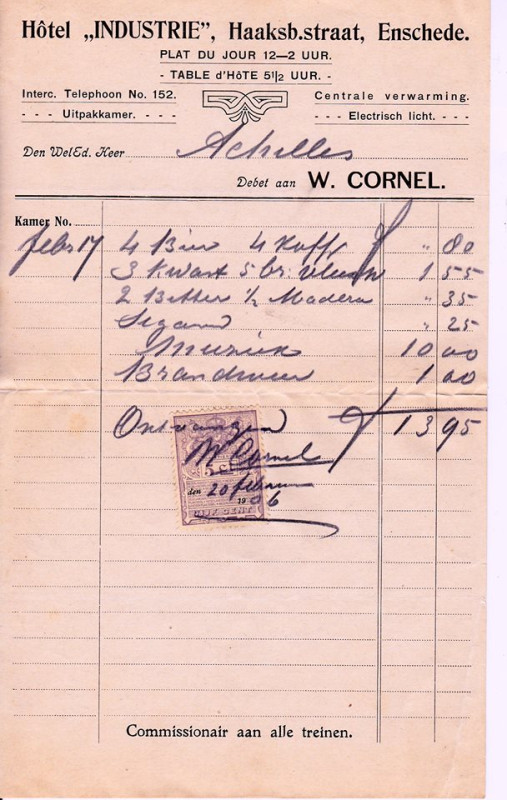 Hôtel „INDUSTRIE”, Haaksb.straat, Enschede.
PLAT DU JOUR 12—2 UUR.
- TABLE d'HÔTE 5½ UUR. -
Interc. Telephoon No. 152. Centrale verwarming.
- - - Uitpakkamer. - - - - - - Electrisch licht. - - -
Den WelEd. Heer Achilles
Debet aan W. CORNEL.
Kamer No.
febr 17 4 Bier 4 Koff „ 80
3 Kwast 5 br. vleesch 1 55
2 Bitter ½ Madera „ 35
„ 25
Muziek 10 00
Brandweer 1 00
Ontvangen 13 95
W Cornel
5 CT
den 20 februari
1906
VIJF CENT
Commissionair aan alle treinen.